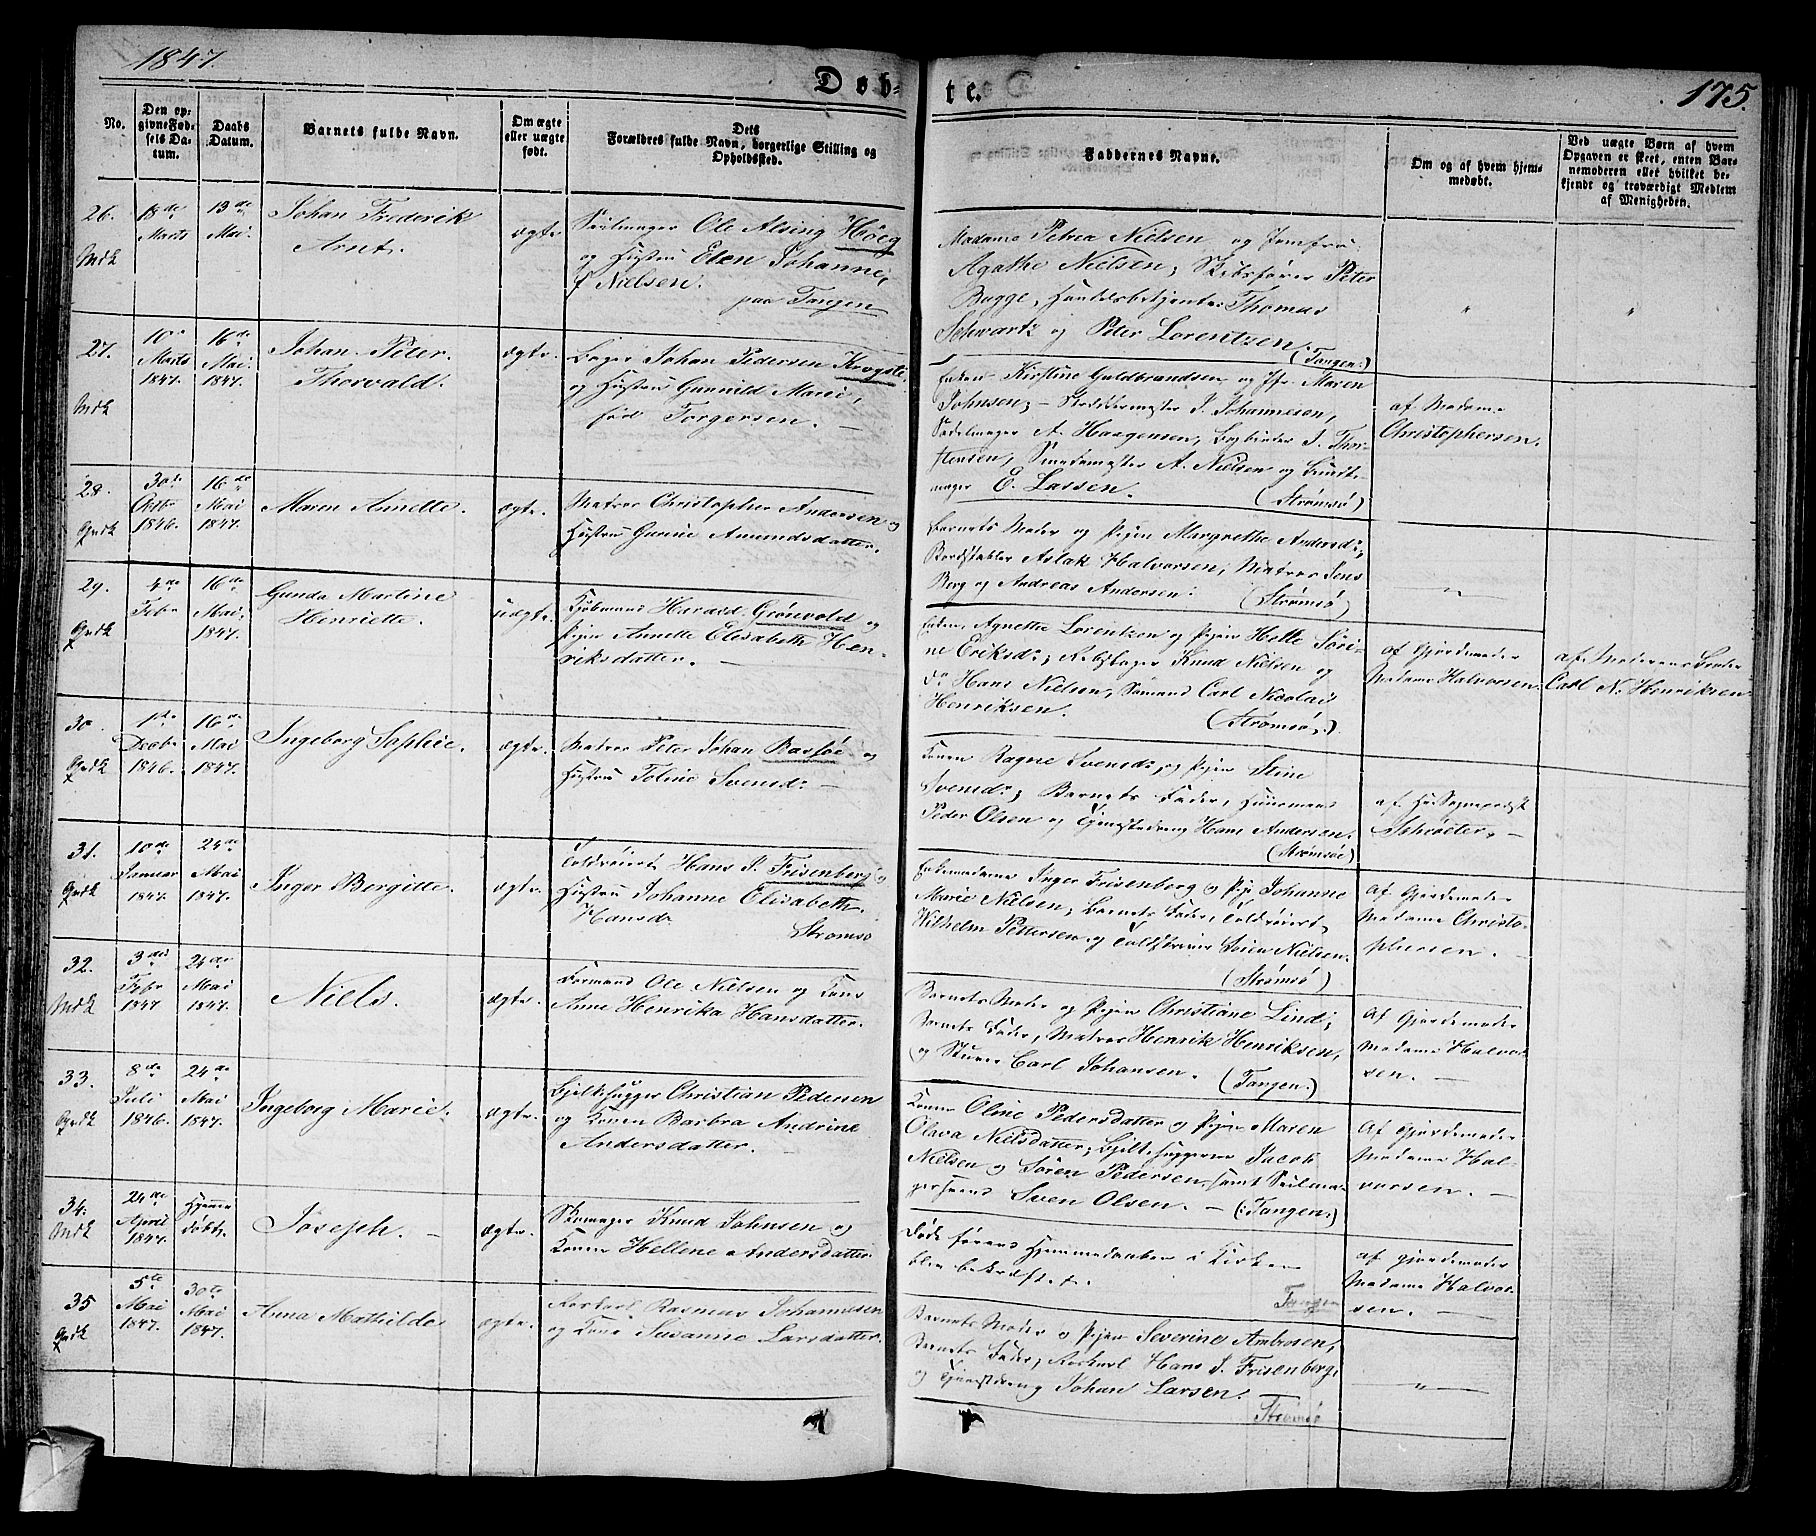 1847.
Døb=
te.
175.
No.
Den op=
givne Fød=
sels Da=
tum.
Daabs
Datum.
Barnets fulde Navn.
Om ægte
eller uægte
født.
Dets
Forældres fulde Navn, borgerlige Stilling og
Opholdssted.
Faddernes Navne.
Om og af hvem hjem=
medøbt.
Ved uægte Børn af hvem
Opgaven er skeet, enten Bar=
nemoderen eller hvilket be=
kjendt og troværdigt Medlem
af Menigheden.
26.
Mdk
18de
Marts
13de
Mai.
Johan Frederik
Arnt.
ægte
Seilmager Ole Alsing Höeg
og Hustru Elen Johanne,
f Nielsen.
paa Tangen
Madame Petrea Nielsen og Jomfru
Agathe Nielsen; Skibsfører Peter
Bugge, Handelsbetjente Thomas
Schwartz og Peter Lorentzen.
(Tangen:)
"
"
27.
Mdk
10de
Marts
1847.
16de
Mai
1847.
Johan Peter
Thorvald.
ægte.
Bager Johan Pedersen
og Hustru Gunnild Marie,
Torgersen. —
Enken Kirstine Guldbrandsen og Jfr. Maren
Johnsen; — J. Johannesen,
Sadelmager A. Haagensen, Bogbinder J. Thor=
stensen, A. Nielsen og
mager E. Lassen.
(Strömsö)
af Madame
Christophersen.
28.
Qvdk
30te
Octbr
1846.
16de
Mai
1847.
Maren Anette.
ægte.
Matros Christopher Andersen og
Hustru Gunine Amundsdatter.
Barnets Moder og Pigen Margrethe Andersdr;
Bordstabler Aslak Halvorsen, Matros Jens
Berg og Andreas Andersen.
(Strömsö)
"
29.
Qvdk
4de
Febr
16de
Mai
1847.
Gunda Martine
Henriette.
uægte.
Kjøbmand Harald Grönvold og
Pigen Annette Elisabeth Hen=
riksdatter. —
Enken Agnethe Lorentzen og Pigen Helle Söri=
ne Eriksdr; Rebslager Knud Nielsen og
Do Hans Nielsen, Sömand Carl Nicolai
Henriksen.
(Strömsö:)
af Gjordemoder
Madame Halvorsen.
af Moderens Broder
Carl N. Henriksen
30
Qvdk
1ste
Decbr
1846.
16de
Mai
1847.
Ingeborg Sophie.
ægte.
Matros Peter Johan Bassöe og
Hustru Toline Svensdr. —
Konen Ragne Svensdr, og Pigen Stine
Svensdr; Barnets Fader, Huusmand
Peder Olsen og Tjenestedreng Hans Andersen.
(Strömsöe)
af
Schröeter. —
31.
Qvdk
10de
Januar
1847.
24de
Mai
1847.
Inger Bergitte.
ægte.
Toldroiert Hans J. Frisenberg og
Hustru Johanne Elisabeth
Hansdr.
Strömsö
Enkemadame Inger Frisenberg og Pige Johanne
Marie Nielsen; Barnets Fader, Toldroiert
Wilhelm Pettersen og Sören Nielsen.
(Strömsö)
af Gjordemoder
Madame Christo=
phersen. —
32.
Mdk
3die
Febr
1847
24de
Mai
1847.
Niels.
ægte.
Formand Ole Nielsen og Kone
Anne Henrika Hansdatter.
Barnets Moder og Pigen Christiane Lind;
Barnets Fader, Matros Henrik Henriksen,
og Stuer Carl Johansen.
(Tangen:)
af Gjordemoder
Madame Halvor=
sen. —
33.
Qvdk
8de
Juli
1846.
24de
Mai
1847.
Ingeborg Marie.
ægte.
Bjelkehugger Christian Pedersen
og Konen Barbra Andrine
Andersdatter.
Konen Oline Pedersdatter og Pigen Maren
Olava Nielsdatter; Bjelkehuggerne Jacob
Nielsen og Sören Pedersen, samt Seilma=
gersvend Sven Olsen. —
(:Tangen:)
af Gjordemoder
Madame Hal=
vorsen. —
34.
Mdk
24de
April
1847.
Hjemme
døbt.
Joseph. —
ægte.
Skomager Knud Johnsen og
Konen Hellene Andersdatter
Døde førend Hjemmedaaben i Kirken
blev bekræftet. —
Tangen
af Gjordemoder
Madame Halvor=
sen. —
35
Qvdk
5te
Mai
1847.
30te
Mai
1847.
Anna Mathilde
ægte.
Rorkarl Rasmus Johannesen
og Kone Susanne Larsdatter.
Barnets Moder og Pigen Severine Ambrosen,
Barnets Fader, Rorkarl Hans J. Frisenberg,
og Tjenestdreng Johan Larsen.
Strömsö
"